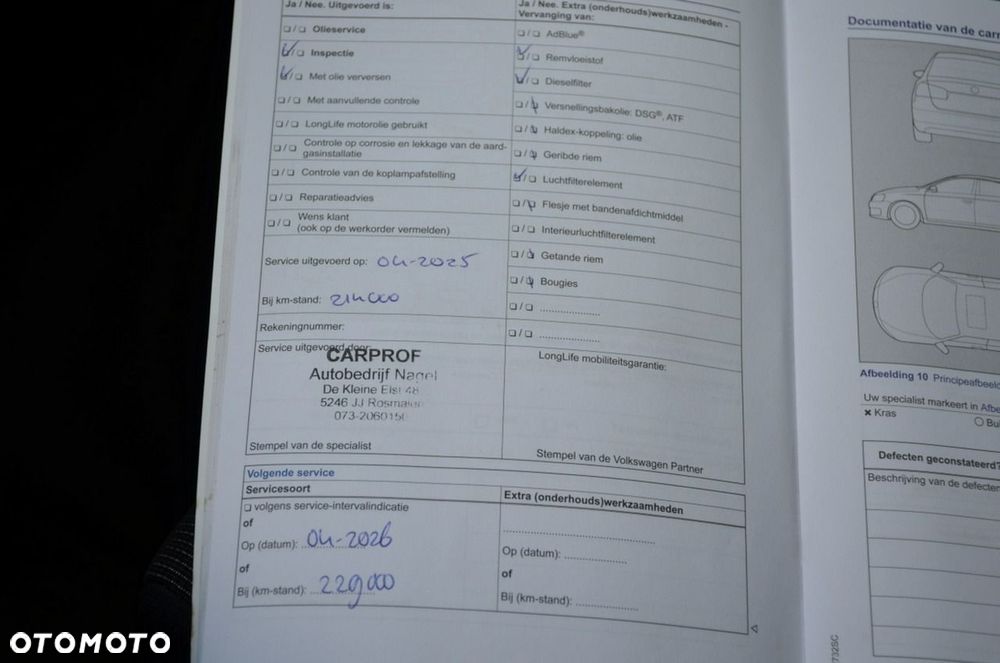 Ja / Nee. Uitgevoerd is:
❏ / ❏ Olieservice
❏ / ❏ Inspectie
❏ / ❏ Met olie verversen
❏ / ❏ Met aanvullende controle
❏ / ❏ LongLife motorolie gebruikt
❏ / ❏ Controle op corrosie en lekkage van de aard-
gasinstallatie
❏ / ❏ Controle van de koplampafstelling
❏ / ❏ Reparatieadvies
❏ / ❏ Wens klant
(ook op de werkorder vermelden)
Service uitgevoerd op: 04-2025
Bij km-stand: 214000
Rekeningnummer:
Service uitgevoerd door:
CARPROF
Autobedrijf Nagel
De Kleine Elst 48
5246 JJ Rosmalen
073-2060150
Stempel van de specialist
Ja / Nee. Extra (onderhouds)werkzaamheden -
Vervanging van:
❏ / ❏ AdBlue®
❏ / ❏ Remvloeistof
❏ / ❏ Dieselfilter
❏ / ❏ Versnellingsbakolie: DSG®, ATF
❏ / ❏ Haldex-koppeling: olie
❏ / ❏ Geribde riem
❏ / ❏ Luchtfilterelement
❏ / ❏ Flesje met bandenafdichtmiddel
❏ / ❏ Interieurluchtfilterelement
❏ / ❏ Getande riem
❏ / ❏ Bougies
❏ / ❏ ....................
❏ / ❏ ....................
LongLife mobiliteitsgarantie:
Stempel van de Volkswagen Partner
Volgende service
Servicesoort
❏ volgens service-intervalindicatie
of
Op (datum): 04-2026
of
Bij (km-stand): 229000
Extra (onderhouds)werkzaamheden
..................................................
Op (datum): ....................
of
Bij (km-stand): ....................
Documentatie van de
Afbeelding 10
Uw specialist markeert in
× Kras
Defecten geconstateerd?
Beschrijving van de defecten
732SC
OTOMOTO